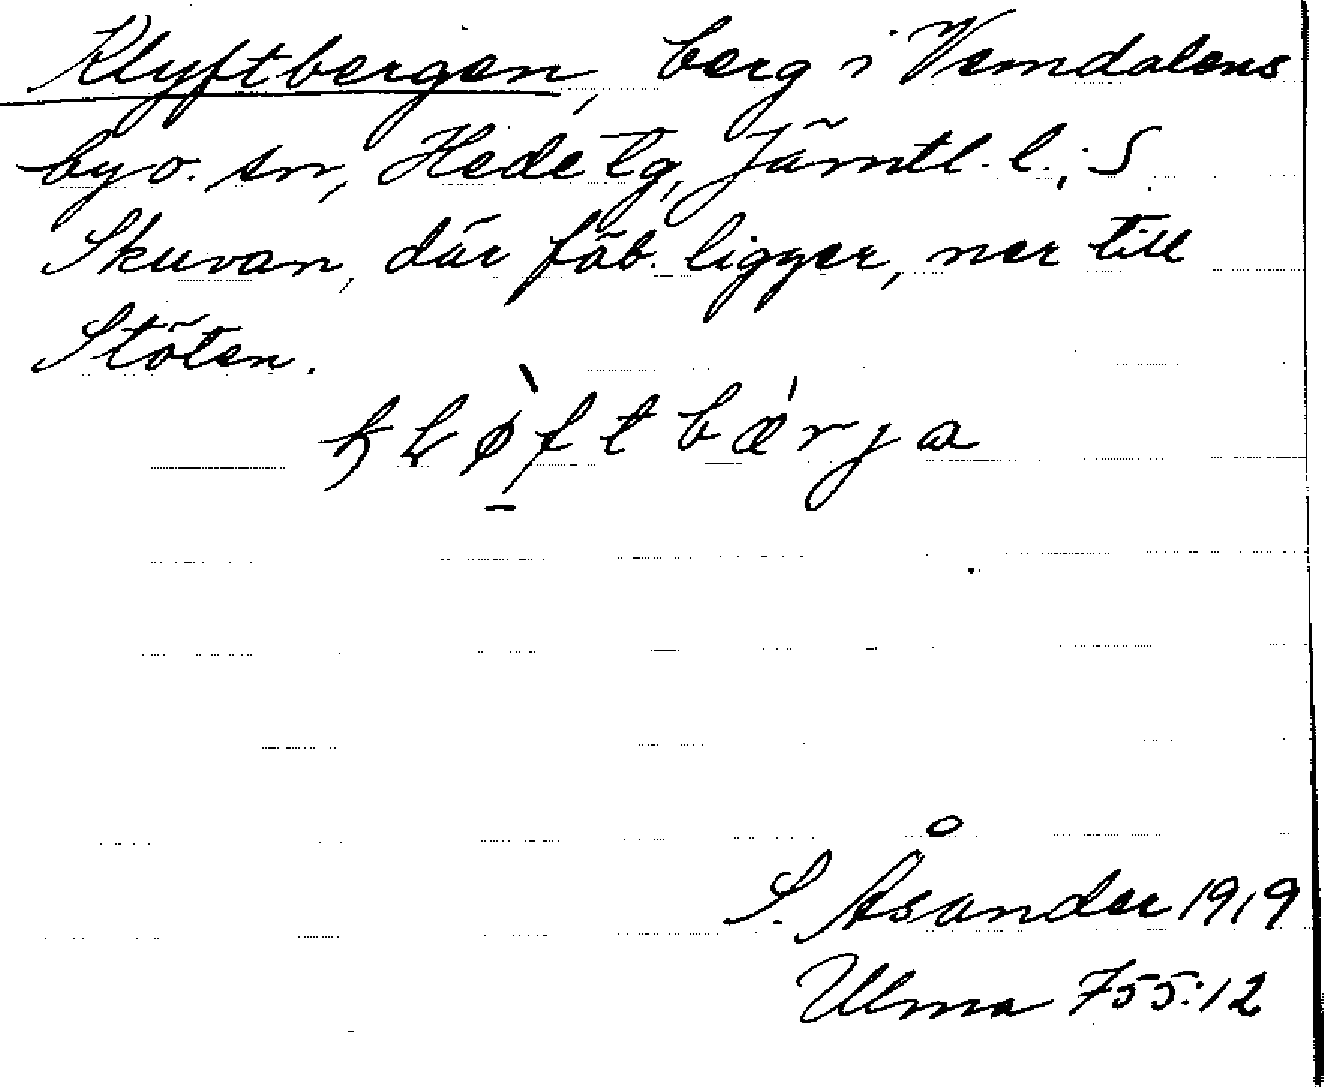 Klyftbergen, berg i Vemdalens
by o. sn, Hede tg, Jämtl. l.; S
Skuvan, där fäb. ligger, ner till
Stöten.
S. Åsander 1919
Ulma 755:12